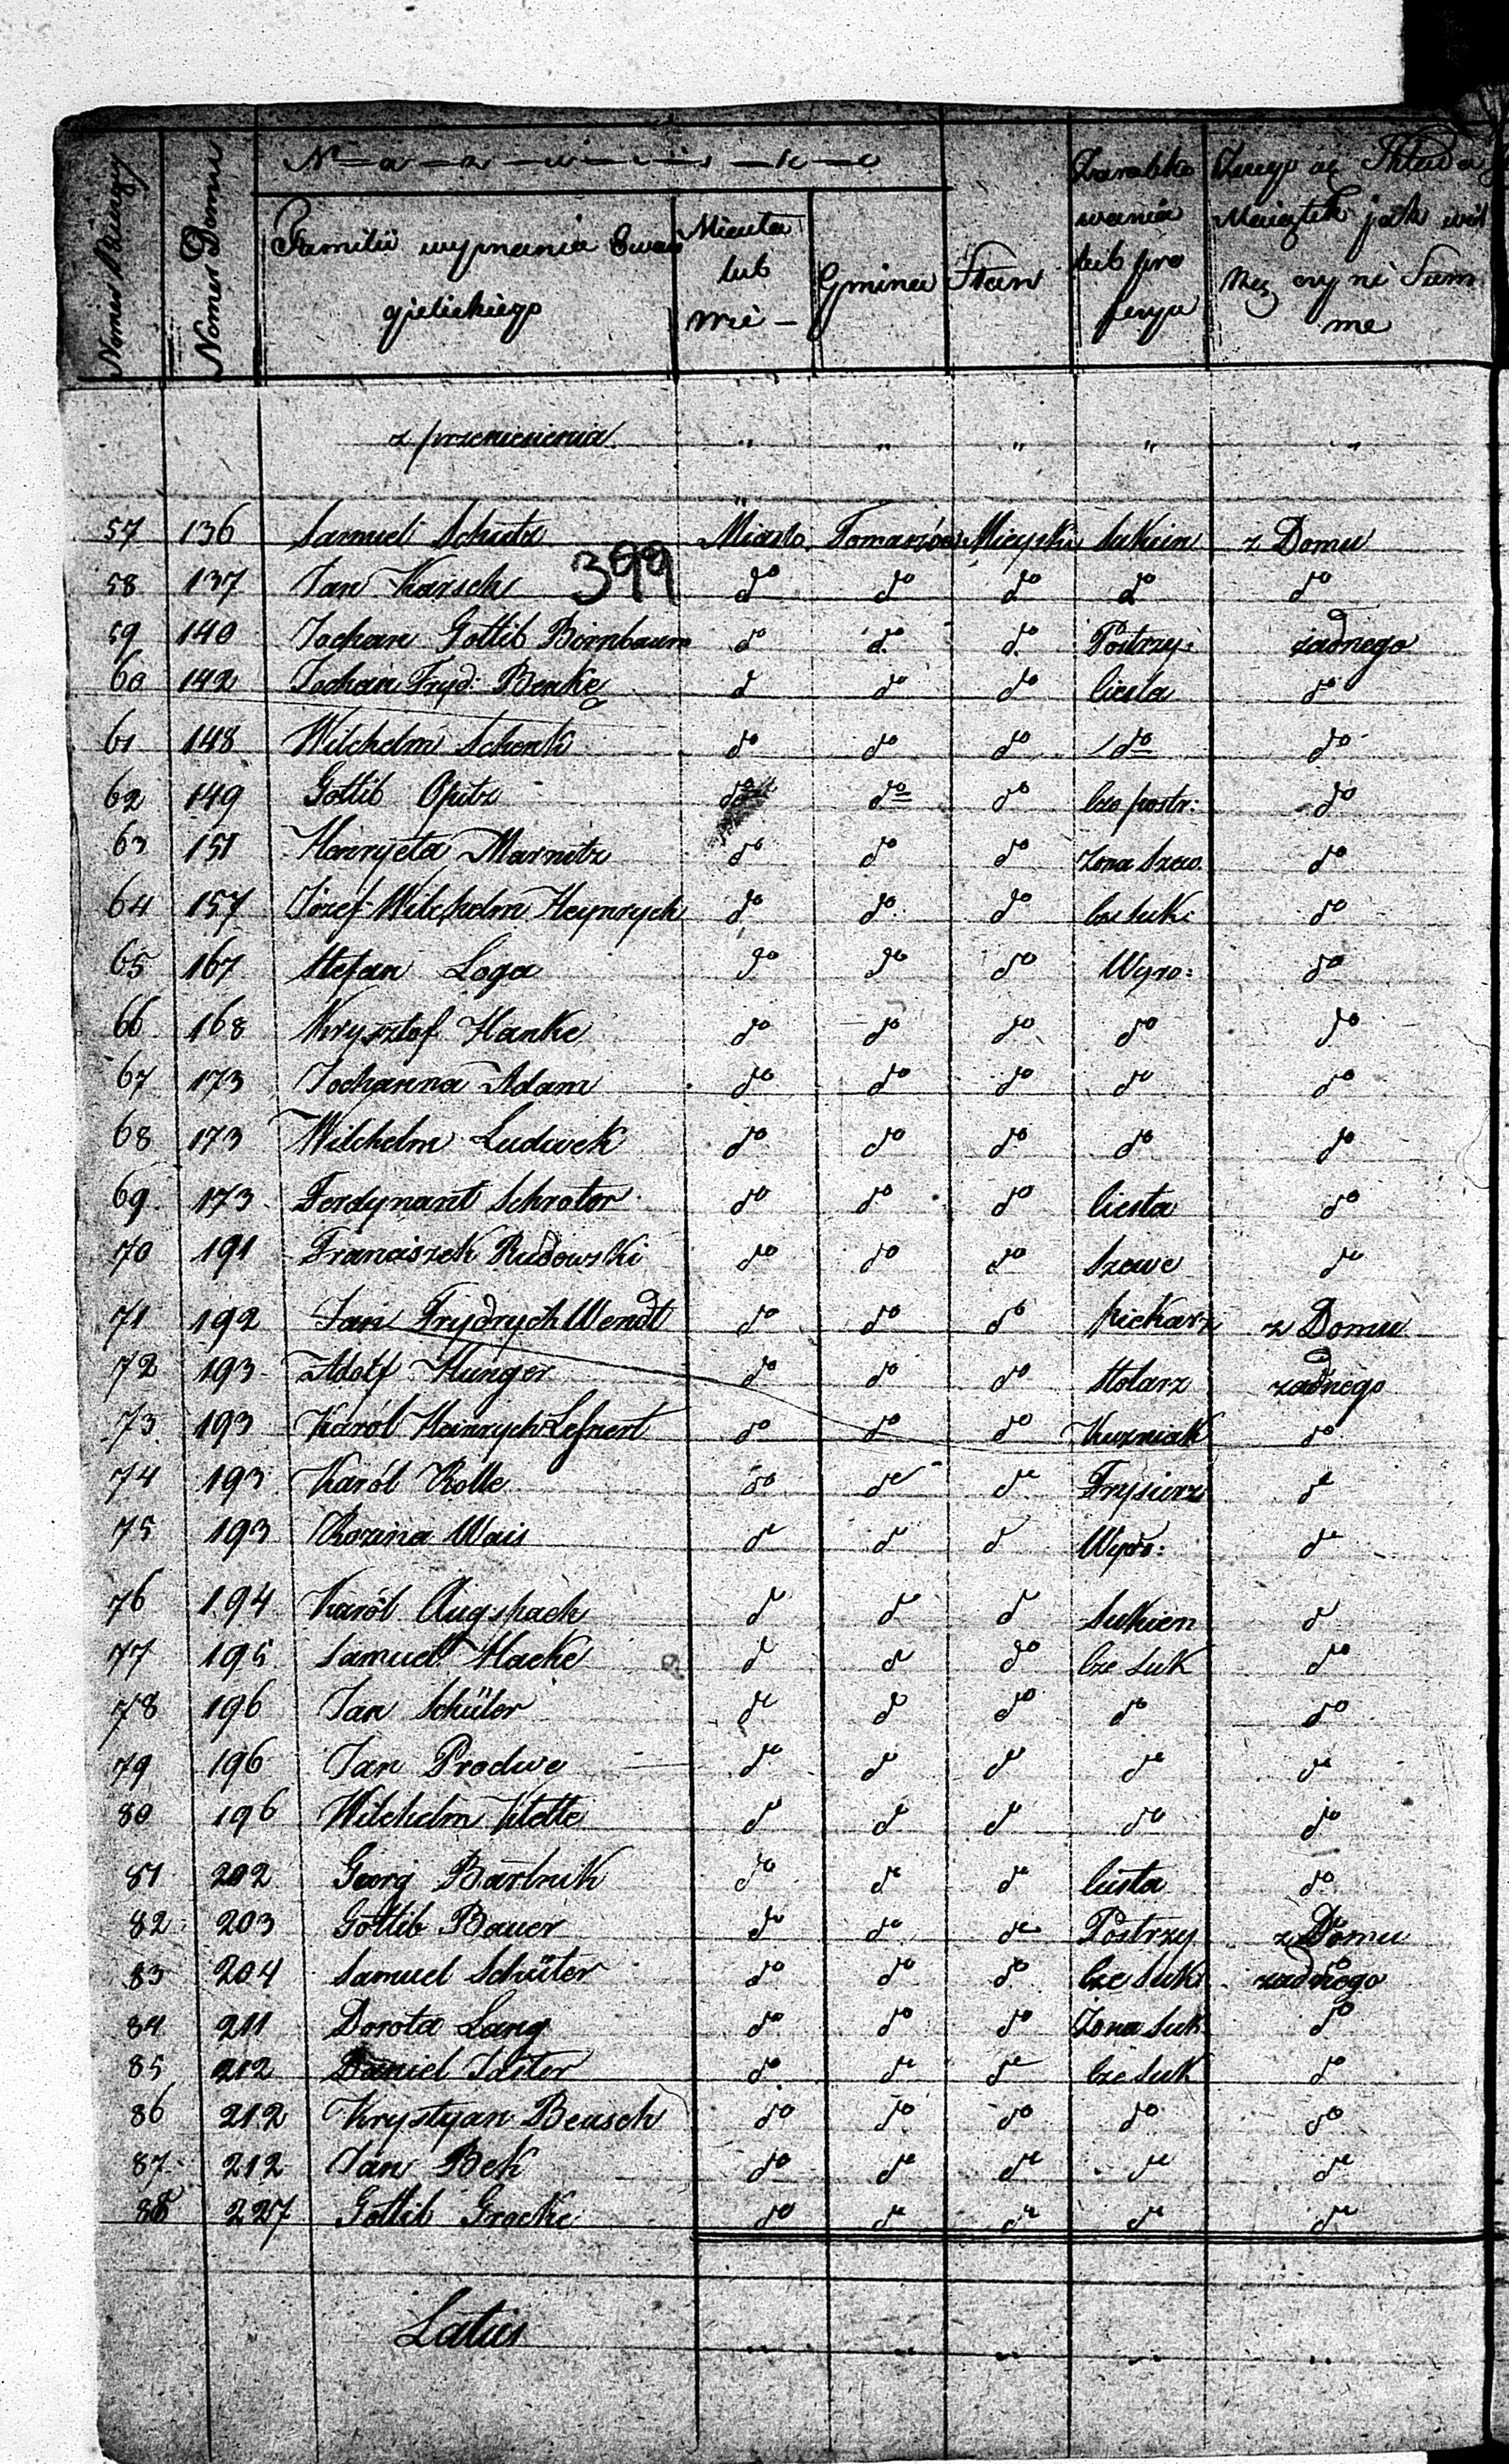 Nomer Bieżący Nomer Domu N-a-z-w-i-s-k-o Zarobko Czego
Familii wyznania Ewan Miasta wania Maiątek jak
gielickiego lub Gmina Stan lub pro
Wsi - fesya Summe
z przeniesienia " " " " "
57 136 Samuel Schutz Miasto Tomaszów Mieyski Sukien z Domu
399
58 137 Jan Karsch do do do do do
59 140 Jochan Gottlib Birnbaum do do do Postrzy: żadnego
60 142 Jochan Fryd: Benke d do do Ciesla do
61 148 Wilchelm Schenk do do do do do
62 149 Gottlib Opitz do do do Cze postr: do
63 151 Henryeta Marnitz do do do Zona Szew. do
64 157 Józef Wilchelm Heynrych do do do Cze Suk: do
65 167 Stefan Loga do do do Wyro: do
66 168 Krysztof Hanke do do do do do
67 173 Jochanna Adam do do do do do
68 173 Wilchelm Ludwek do do do do do
69 173 Ferdynant Schroter do do do Ciesla do
70 191 Franciszek Rudowski do do do Szewc do
71 192 Jan Frydrych Wendt do do do Piekarz z Domu
72 193 Adolf Hunger do do do Stolarz żadnego
73 193 Karól Heinrych do do do Kuzniak do
74 193 Karól Kolle do do do Frysierz do
75 193 Rozina Wais do do d Wyro: do
76 194 Karól Augspach do do d Sukien d
77 195 Samuel Hacke d d do Cze Suk do
78 196 Jan Schüler do d do do do
79 196 Jan Prodwe do d d do do
80 196 Wilchelm Klette d d d do do
81 202 Georg Bartnik do do do Ciesla do
82 203 Gottlib Bauer do do do Postrzy z Domu
83 204 Samuel Schüter do do do Cze Suk: żadnego
84 211 Dorota Lang do do do Zona Suk do
85 212 Daniel Jaster do do do Cze Suk do
86 212 Krystyan Beusch do do do do do
87 212 Jan Bek do do do do do
88 227 Gottlib Grocke do do do do do
Latus " " " " "